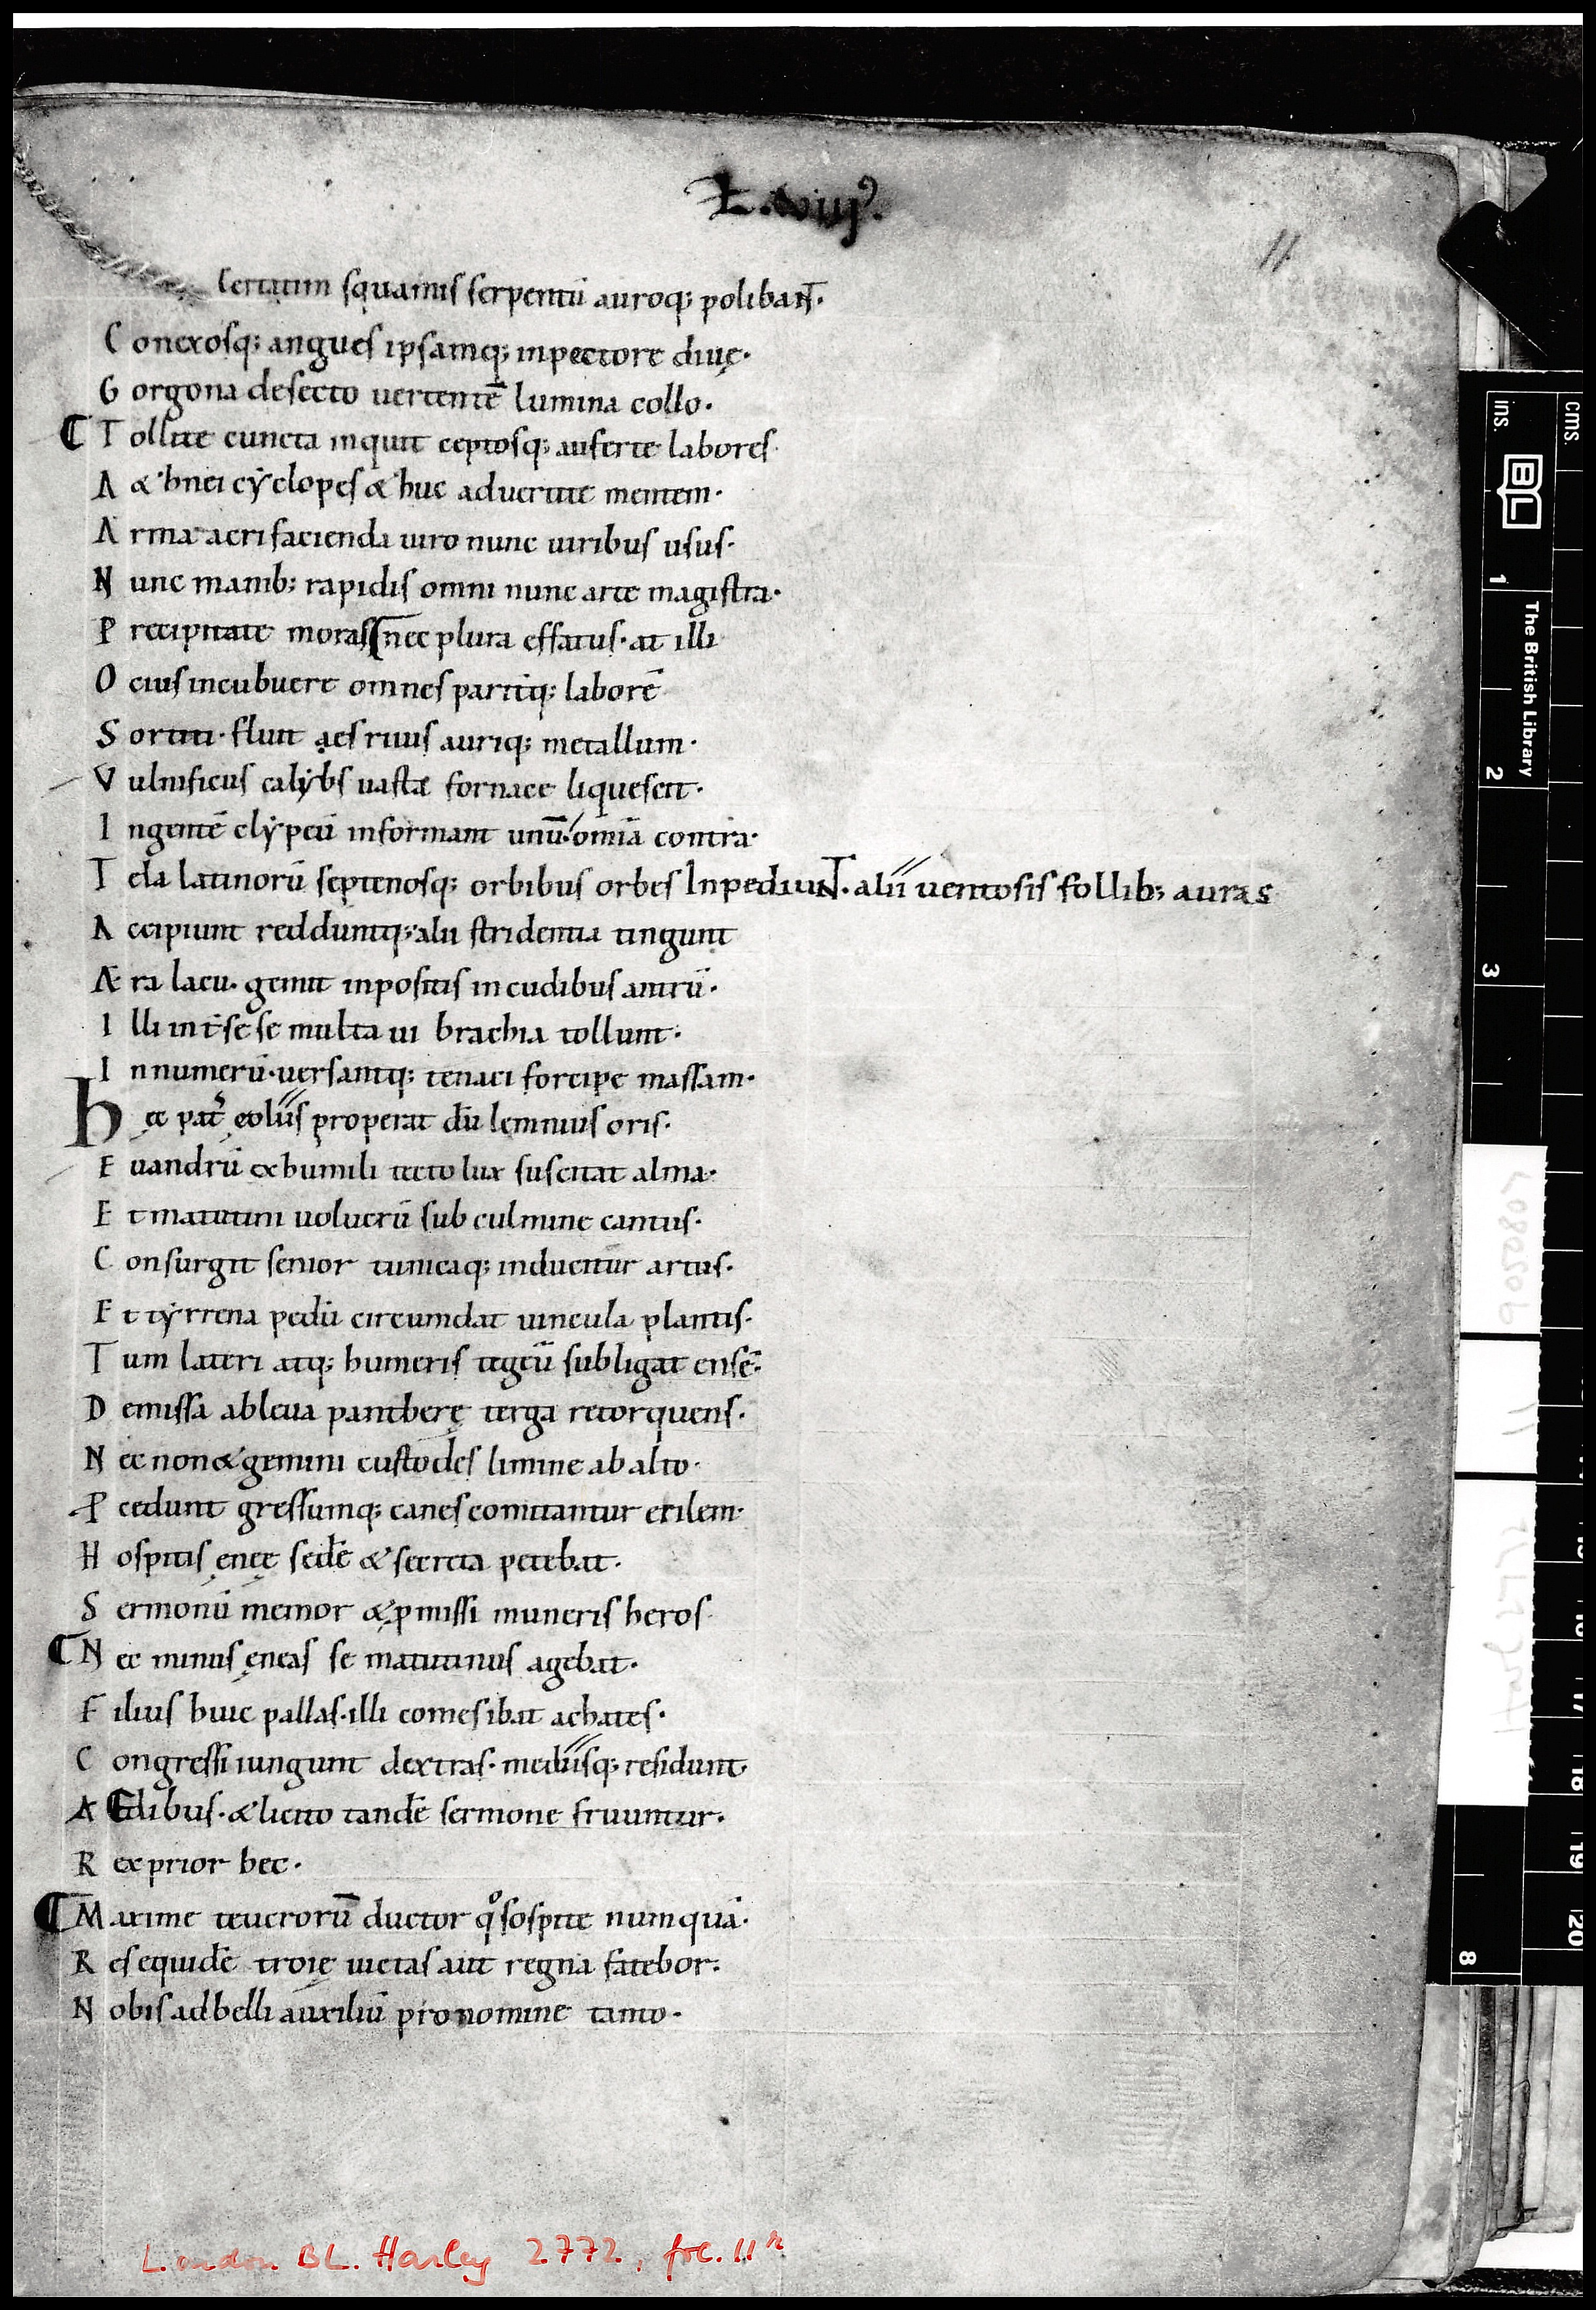 L. viii⁹.
Certatim squamis serpentū auroq; polibaNT.
C onexosq; angues ipsamq; inpectore diuę.
G orgona desecto uertentē lumina collo.
T ollite cuncta inquit ceptosq; auferte labores.
A &hnei cẏclopes & huc aduertite mentem.
A rma acri facienda uiro nunc uiribus usus.
N unc manib; rapidis omni nunc arte magistra.
P recipitate moras nec plura effatus. at illi
O cius incubuere omnes paritq; laborē
S ortiti. fluit aes riuis auriq; metallum.
V ulnificus calẏbs uasta fornace liquescit.
I ngentē clẏpeū informant unū. omīa contra.
T ela latinorū septenosq; orbibus orbes InpediuNT. alii uentosis follib; auras
A ccipiunt redduntq; alii stridentia tingunt
Æ ra lacu. gemit inpositis incudibus antrū.
I lli int̄ sese multa ui brachia tollunt.
I nnumerū. uersantq; tenaci forcipe massam.
h ęc pat̄ ęoliis properat dū lemnius oris.
E uandrū exhumili tecto lux suscitat alma.
E t matutini uolucrū sub culmine cantus.
C onsurgit senior tunicaq; inducitur artus.
E t tẏrrena pedū circumdat uincula plantis.
T um lateri atq; humeris tegeū subligat ensē.
D emissa ableua pantherę terga retorquens.
N ec non & gemini custodes limine ab alto.
P cedunt gressumq; canes comitantur erilem.
H ospitis ęnęę sedē & secreta petebat.
S ermonū memor & pmissi muneris heros.
N ec minus ęneas se matutinus agebat.
F ilius huic pallas. illi comes ibat achates.
C ongressi iungunt dextras. mediisq; residunt
A Edibus. & licito tandē sermone fruuntur.
R ex prior hec.
M axime teucrorū ductor qͦ sospite numquā.
R es equidē troię uictas aut regna fatebor.
N obis ad belli auxiliū pro nomine tanto.
London BL. Harley 2772, fol. 11ʳ
ins.
cms.
BL
The British Library
1
2
3
8
17
18
19
20